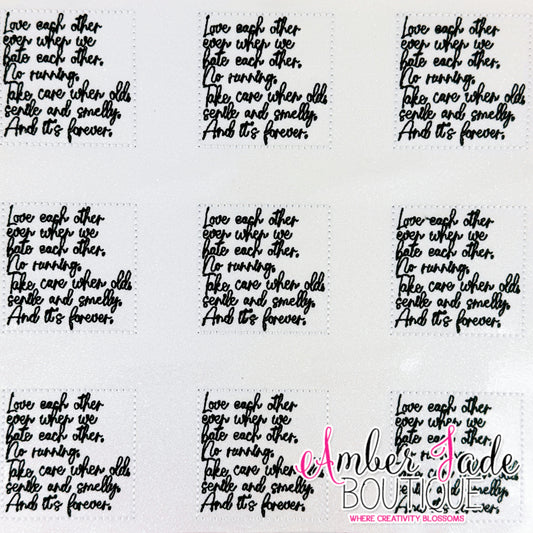 Love each other
even when we
hate each other.
No running.
Take care when old,
senile and smelly.
And it's forever.
Love each other
even when we
hate each other.
No running.
Take care when old,
senile and smelly.
And it's forever.
Love each other
even when we
hate each other.
No running.
Take care when old,
senile and smelly.
And it's forever.
Love each other
even when we
hate each other.
No running.
Take care when old,
senile and smelly.
And it's forever.
Love each other
even when we
hate each other.
No running.
Take care when old,
senile and smelly.
And it's forever.
Love each other
even when we
hate each other.
No running.
Take care when old,
senile and smelly.
And it's forever.
Love each other
even when we
hate each other.
No running.
Take care when old,
senile and smelly.
And it's forever.
Love each other
even when we
hate each other.
No running.
Take care when
senile and smelly.
And it's forever.
Love each other
even when we
hate each other.
and smelly.
And it's forever.
Amber Jade
BOUTIQUE
WHERE CREATIVITY BLOSSOMS